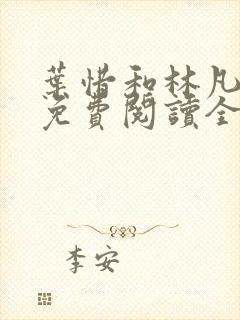 葉惜和林凡
免費閱讀全
李安